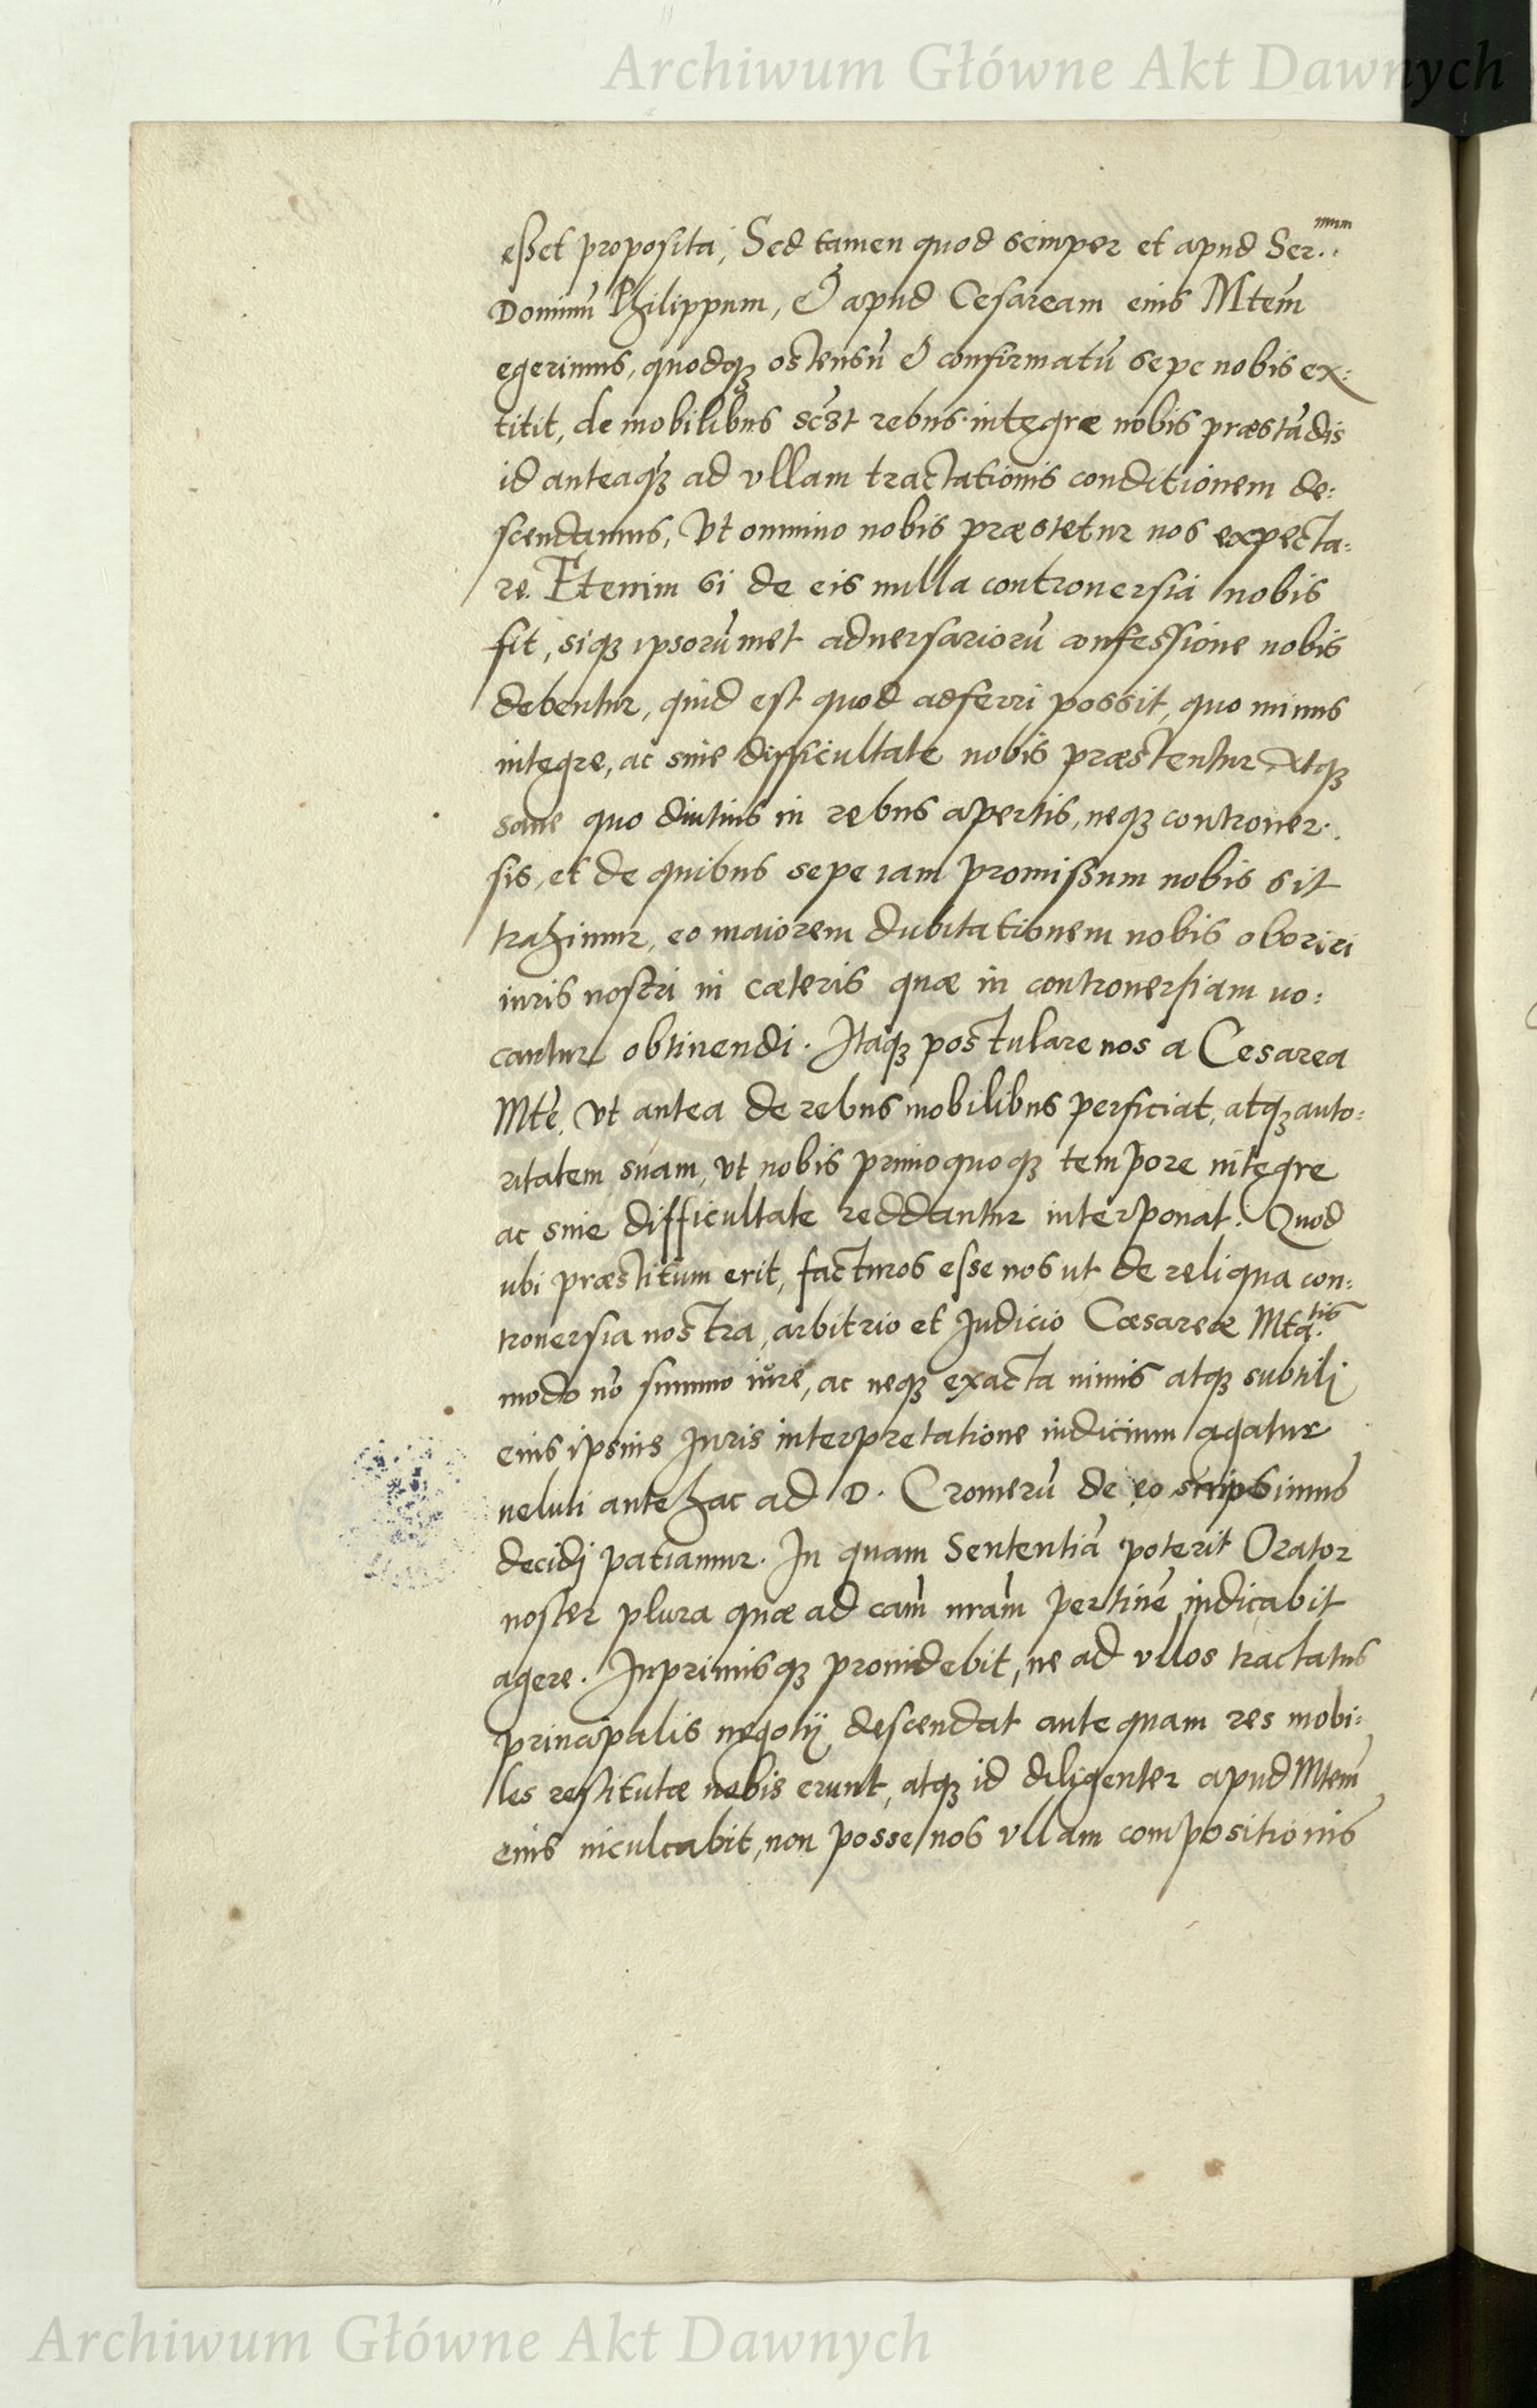 Archiwum Główne Akt Dawnych
eßet proposita, Sed tamen quod semper et apud Ser.mum
Dominū Philippum, & apud Cesaream eius Mtem̄
egerimus, quodqꝫ ostensū & confirmatū sepe nobis ex:
titit, de mobilibus scꝫt rebus integre nobis præstādis
id anteaqꝫ̄ ad vllam tractationis conditionem de:
scendamus, Vt omnino nobis præstetur nos expecta:
re. Etenim si de eis nulla controuersia nobis
fit, siqꝫ ipsorūmet aduersariorū confessione nobis
debentur, quid est quod adferri possit, quo minus
integre, ac sine difficultate nobis præstentur Atqꝫ
sane quo diutius in rebus apertis, neqꝫ controuer:
sis, et de quibus sepe iam promißum nobis sit
trahimur, eo maiorem dubitationem nobis oboriri
iuris nostri in cæteris quæ in controuersiam uo:
cantur obtinendi. Itaqꝫ postulare nos a Cesarea
Mte. Vt antea de rebus mobilibus perficiat, atqꝫ auto:
ritatem suam, vt nobis primo quoqꝫ tempore integre
ac sine difficultate reddantur interponat. Quod
ubi præstitum erit, facturos esse nos ut de reliqua con:
trouersia nostra, arbitrio et Judicio Cæsareæ Mtatis
modo nō summo iure, ac neqꝫ exacta nimis atqꝫ subtili
eius ipsius Juris interpretatione iudicium agatur
ueluti antehac ad D. Cromerū de eo scripsimus
decidi patiamur. In quam Sententiā poterit Orator
noster plura quæ ad cam̄ nram̄ pertinē indicabit
agere. Inprimisqꝫ prouidebit, ne ad vllos tractatus
principalis negotij descendat ante quam res mobi:
les restitutæ nobis erunt, atqꝫ id diligenter apud Mtem̄
eius inculcabit, non posse nos vllam compositionis
Archiwum Główne Akt Dawnych